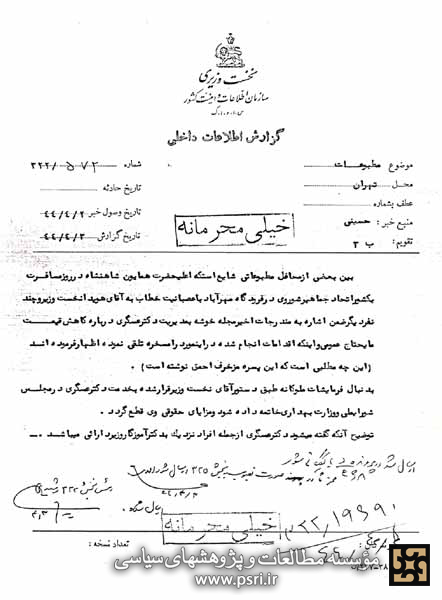 نخست وزیری
سازمان اطلاعات و امنیت کشور
س.ا.و.ا.ک
گزارش اطلاعات داخلی
موضوع مطبوعات
شماره ۳۲۲/۵۷۲
محل تهران
تاریخ حادثه
عطف بشماره
تاریخ وصول خبر ۴۴/۴/۲
منبع خبر: حسینی
تاریخ گزارش ۴۴/۴/۳
تقویم: ب ۳
خیلی محرمانه
بین بعضی از محافل مطبوعاتی شایع استکه اعلیحضرت همایون شاهنشاه در روز مسافرت
بکشور اتحاد جماهیر شوروی در فرودگاه مهرآباد با عصبانیت خطاب به آقای هویدا نخست وزیر و چند
نفر دیگر ضمن اشاره به مندرجات اخیر مجله خوشه بمدیریت دکتر عسگری درباره کاهش قیمت
مایحتاج عمومی و اینکه اقدامات انجام شده در اینمورد را مسخره تلقی نموده اظهار فرموده اند
(این چه مطلبی است که این پسره مزخرف احمق نوشته است).
بدنبال فرمایشات ملوکانه طبق دستور آقای نخست وزیر قرار شده بخدمت دکتر عسگری در مجلس
شورایملی و وزارت بهداری خاتمه داده شود و مزایای حقوقی وی قطع گردد.
توضیح آنکه گفته میشود دکتر عسگری از جمله افراد نزدیک بدکتر آموزگار وزیر دارائی میباشد.
خیلی محرمانه
تعداد نسخه:
مؤسسه مطالعات و پژوهشهای سیاسی
www.psri.ir